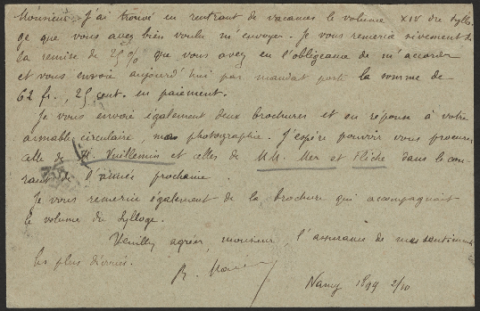 Monsieur, J'ai trouvé en rentrant de vacances le volume XIV du Sylloge
ge que vous avez bien voulu m'envoyer. Je vous remercie vivement de
la remise de 25% que vous avez eu l'obligeance de m'accorder
et vous envoie aujourd'hui par mandat poste la somme de
62 fr., 25 cent. en paiement.
Je vous envoie également deux brochures et en réponse à votre
aimable circulaire ma photographie. J'espère pouvoir vous procurer
celle de M. Vuillemin et celles de MM. Mer et Fliche dans le cou-
rant de l'année prochaine.
Je vous remercie également de la brochure qui accompagnait
le volume du Sylloge.
Veuillez agréer, monsieur, l'assurance de mes sentiments
les plus dévoués.
R. Maire
Nancy 1899 2/10